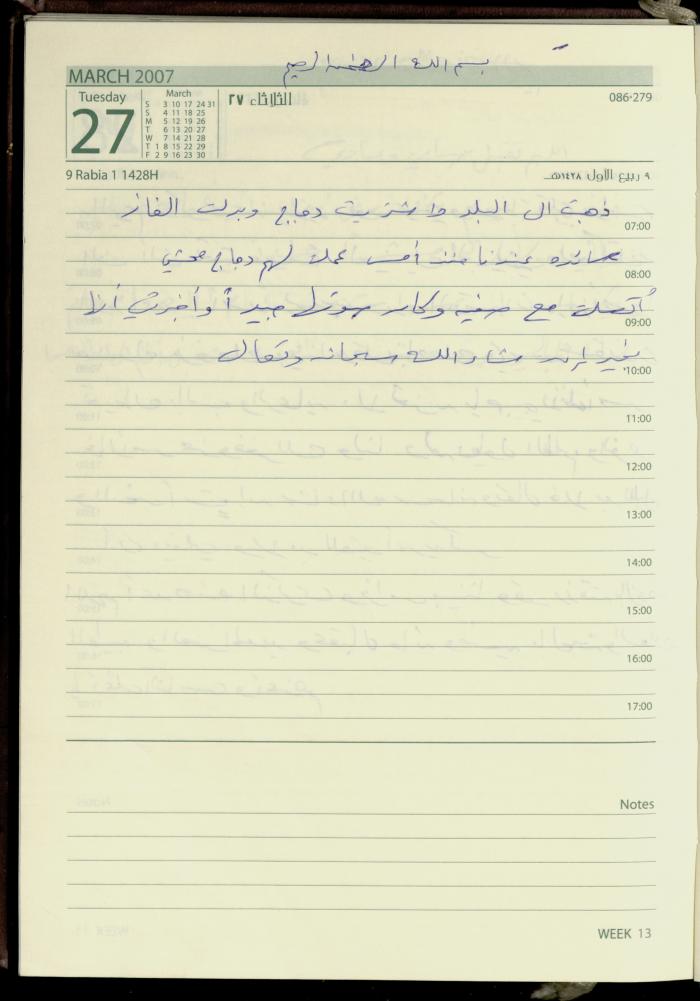 بسم الله الرحمن الرحيم
MARCH 2007
Tuesday
27
March
S 3 10 17 24 31
S 4 11 18 25
M 5 12 19 26
T 6 13 20 27
W 7 14 21 28
T 1 8 15 22 29
F 2 9 16 23 30
الثلاثاء ٢٧
086-279
9 Rabia 1 1428H
٩ ربيع الأول ١٤٢٨هـ
ذهبت الى البلد واشتريت دجاج وبدلت الغاز
07:00
عندنا منذ أمس عملت لهم دجاج محشي
08:00
أتصلت مع صفيه وكان صوتها جيد اً وأخبرتني أنها
09:00
بخير إن شاء الله سبحانه وتعالى
10:00
11:00
12:00
13:00
14:00
15:00
16:00
17:00
Notes
WEEK 13